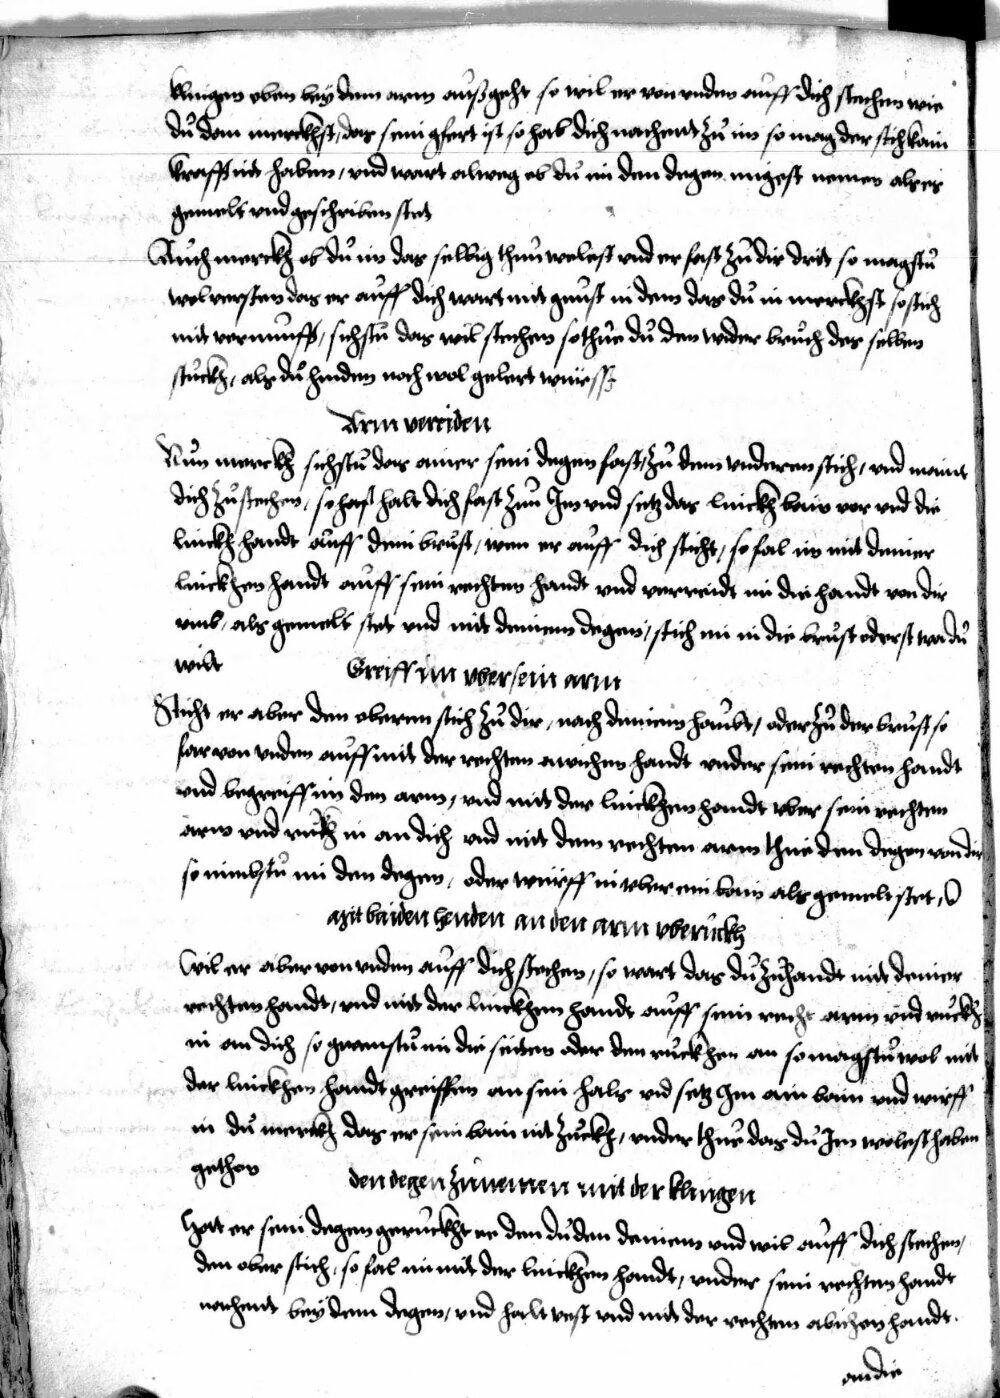 klingen oben bey dem arm außgeht so wil er von unden auff dich stechen wie
du dan merckhst, das sein gfert ist so hab dich nachent zu im so mag der stich kain
krafft nit haben, und wart alweg ob du im den degen mügest nemen als es
gemelt und geschriben stet
Auch merckh ob du im das selbig thun welest und er fast zu dir drit so magstu
wol versten das er auff dich wart mit gunst in dem das du in merckhst so stich
mit vernunfft, sichstu das wil stechen so thue du den wider bruch des selben
stuckh, als du hinden noch wol gelert würst
Arm vereiden
Nun merckh sichstu das ainer sein degen fast, zu dem underen stich, und maint
dich zu stechen, so halt dich fast zuu Im und setz das linckh bain vor und die
linckh handt auff dein brust, wen er auff dich sticht, so fal im mit deiner
linckhen handt auff sein rechten handt und verreidt im die handt von dir
umb, als gemelt stet und mit deinem degen, stich im in die brust oder st wa du
wilt
Greiff im uber sein arm
Sticht er aber den oberen stich zu dir, nach deinem haubt, oder zu der brust so
far von unden auff mit der rechten awichen handt under sein rechten handt
und begreiff im den arm, und mit der linckhen handt uber sein rechten
arm und ruckh in an dich und mit dem rechten arm thue den degen von dir
so nimbstu im den degen, oder würff in uber ein bain als gemelt stet,
Mit baiden henden an den arm uberuckh
Wil er aber von unden auff dich stechen, so wart das du zuhandt mit deiner
rechten handt, und mit der linckhen handt auff sein recht arm und ruckh
in an dich so gewinstu im die seiten oder den ruckhen an so magstu wol mit
der linckhen handt greiffen an sein hals und setz Im ain bain und wirff
in du merckh das er sein bain nit zuckh, under thue das du Im welest haben
gethon
den degen zunemen mit der klingen
Hat er sein degen geruckht ee den du den deinem und wil auff dich stechen,
den ober stich, so fal im mit der linckhen handt, under sein rechten handt
nachent bey dem degen, und halt vest und mit der rechten abichen handt.
an die